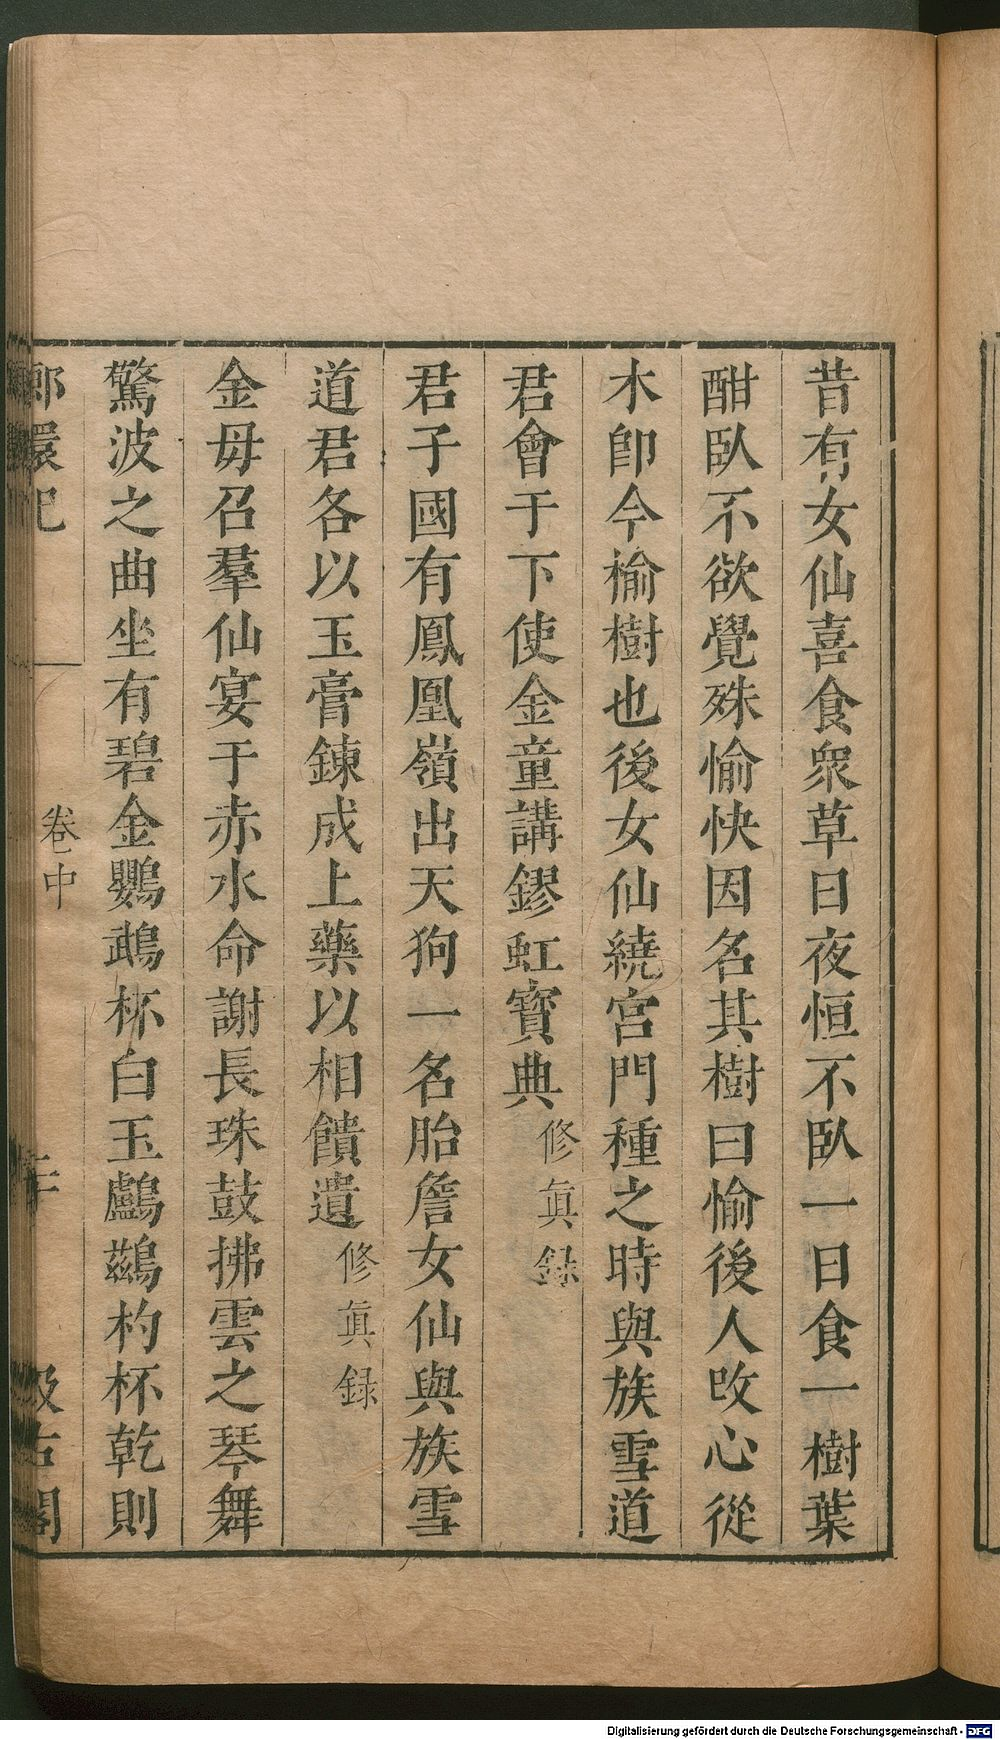 昔有女仙喜食衆草日夜恒不臥一日食一樹葉
酣臥不欲覺殊愉快因名其樹曰愉後人攺心從
木卽今榆樹也後女仙繞宮門種之時與族雪道
君會于下使金童講鏐虹寶典修眞錄
君子國有鳳凰嶺出天狗一名胎詹女仙與族雪
道君各以玉膏鍊成上藥以相饋遺修眞録
金母召羣仙宴于赤水命謝長珠鼓拂雲之琴舞
驚波之曲坐有碧金鸚鵡杯白玉鸕鶿杓杯乾則
卷中
Digitalisierung gefördert durch die Deutsche Forschungsgemeinschaft - DFG